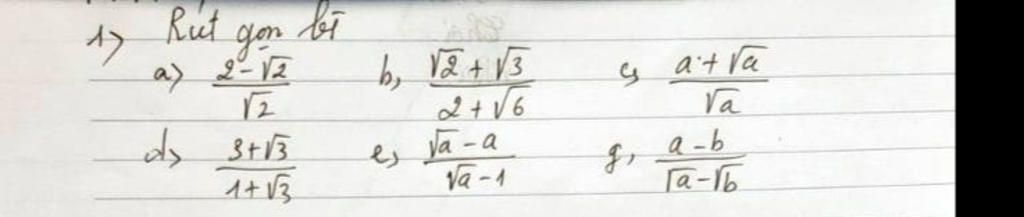 1) Rút gọn bt
a) (2 - √2)/√2 b, (√2 + √3)/(2 + √6) c, (a + √a)/√a
d) (3 + √3)/(1 + √3) e, (√a - a)/(√a - 1) g, (a - b)/(√a - √b)